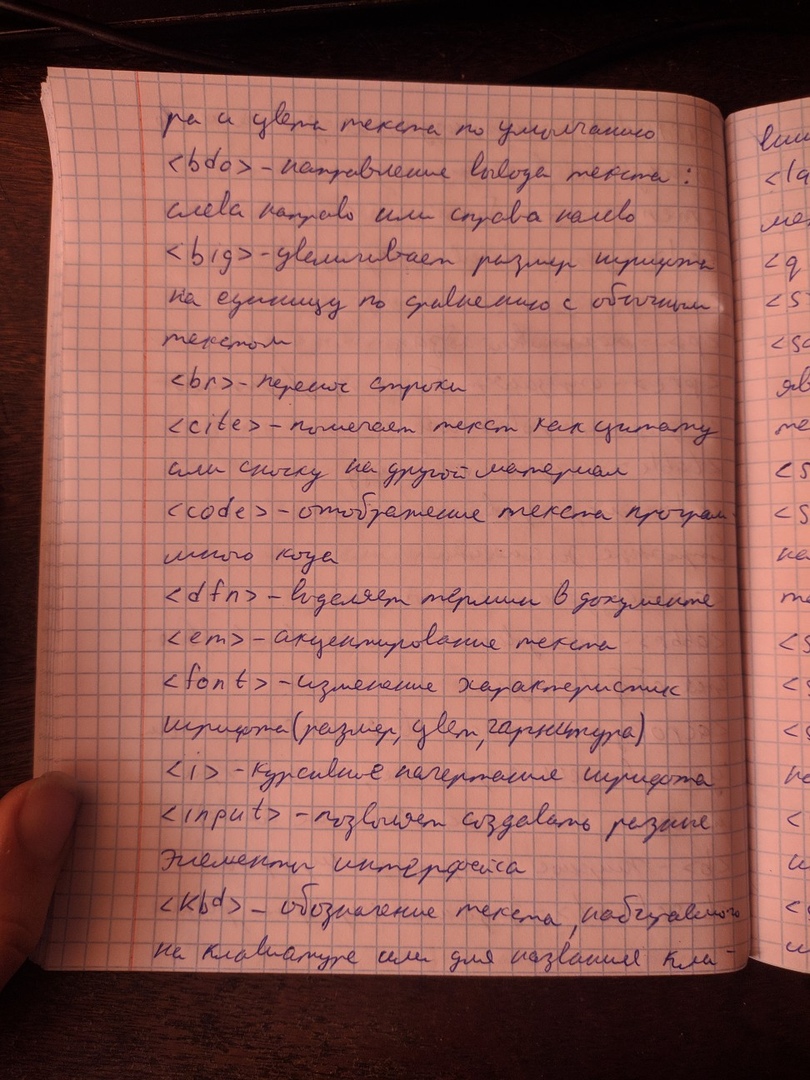 ра и цвета текста по умолчанию
<bdo> - направление вывода текста :
слева направо или справа налево
<big> - увеличивает размер шрифта
на единицу по сравнению с обычным
текстом
<br> - перенос строки
<cite> - помечает текст как цитату
или сноску на другой материал
<code> - отображение текста програм-
много кода
<dfn> - выделяет термин в документе
<em> - акцентирование текста
<font> - изменение характеристик
шрифта (размер, цвет, гарнитура)
<i> - курсивное начертание шрифта
<input> - позволяет создавать разные
элементы интерфейса
<kbd> - обозначение текста, набираемого
на клавиатуре или для названия кла-